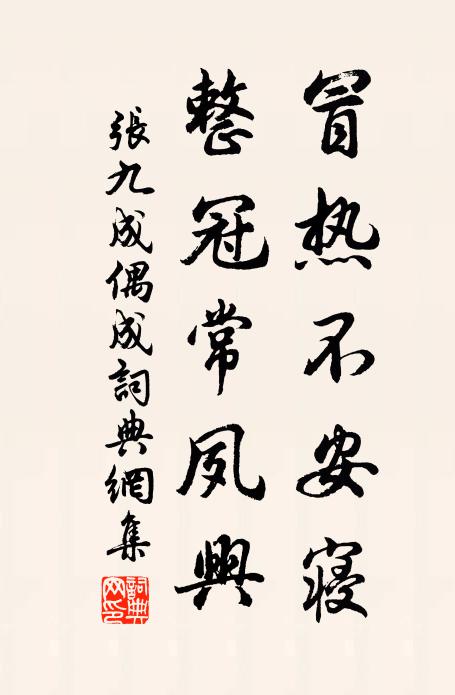 冒热不安寝
整冠常夙興
張九成偶成詞典網集
詞典網印